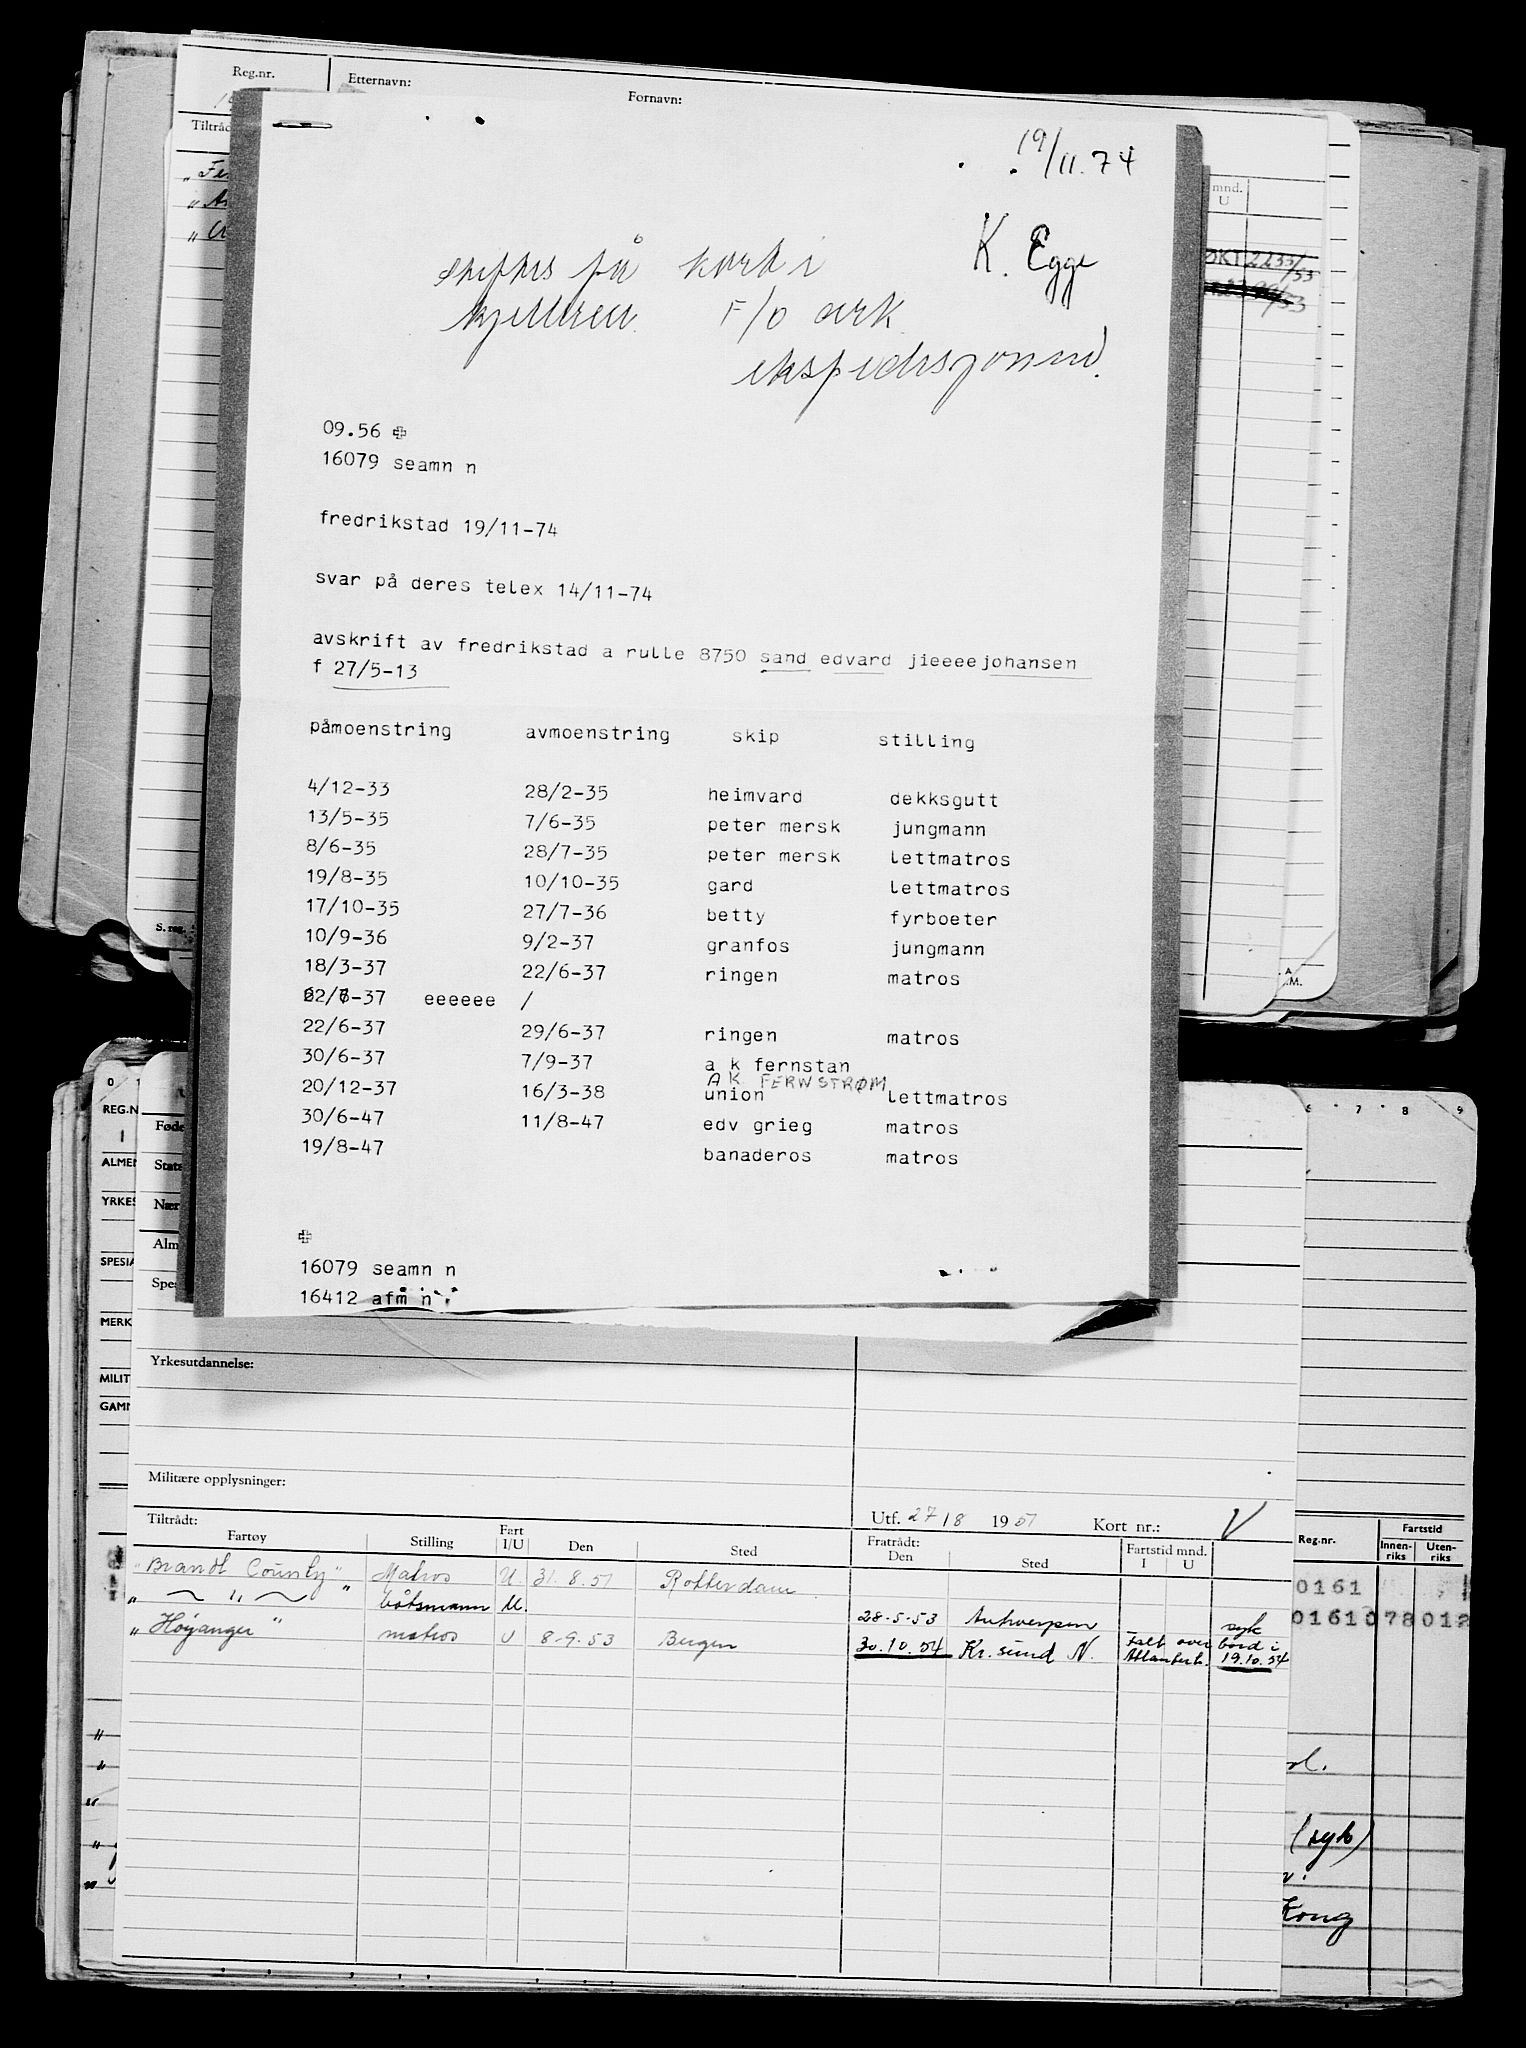 Reg.nr.
Etternavn:
Fornavn:
Tiltråd
mnd.
U
19/11.74
K. Egge
på kort i
F/o ark
ekspedisjonen.
09.56
16079 seamn n
fredrikstad 19/11-74
svar på deres telex 14/11-74
avskrift av fredrikstad a rulle 8750 sand edvard jieeeejohansen
f 27/5-13
påmoenstring avmoenstring skip stilling
4/12-33 28/2-35 heimvard dekksgutt
13/5-35 7/6-35 peter mersk jungmann
8/6-35 28/7-35 peter mersk lettmatros
19/8-35 10/10-35 gard lettmatros
17/10-35 27/7-36 betty fyrboeter
10/9-36 9/2-37 granfos jungmann
18/3-37 22/6-37 ringen matros
22/6-37 eeeeee /
22/6-37 29/6-37 ringen matros
30/6-37 7/9-37 a k fernstan
A K. FERNSTRØM
20/12-37 16/3-38 union lettmatros
30/6-47 11/8-47 edv grieg matros
19/8-47 banaderos matros
16079 seamn n
16412 afm n
S. reg.
A
.M.
0
6 7 8 9
REG.N
ALMEN
YRKES
SPESIA
MERK
MILIT
GAMM
Føde
Stats
Nær
Alm
Spe
Yrkesutdannelse:
Militære opplysninger:
Utf. 27/8 1951 Kort nr.: V
Tiltrådt:
Fartøy Stilling Fart I/U Den Sted
Fratrådt:
Den Sted Fartstid mnd. I U
"Brandt County" Matros U. 31.8.51 Rotterdam
" " " båtsmann U. 28-5-53 Antwerpen syk
"Høyanger" matros U 8-9.53 Bergen 30.10.54 Kr.sund N. Falt over bord i
Atlanterh. 19.10.54
Reg.nr. Fartstid
Innen-riks Uten-riks
0161
0161078012
(syk)
Kong